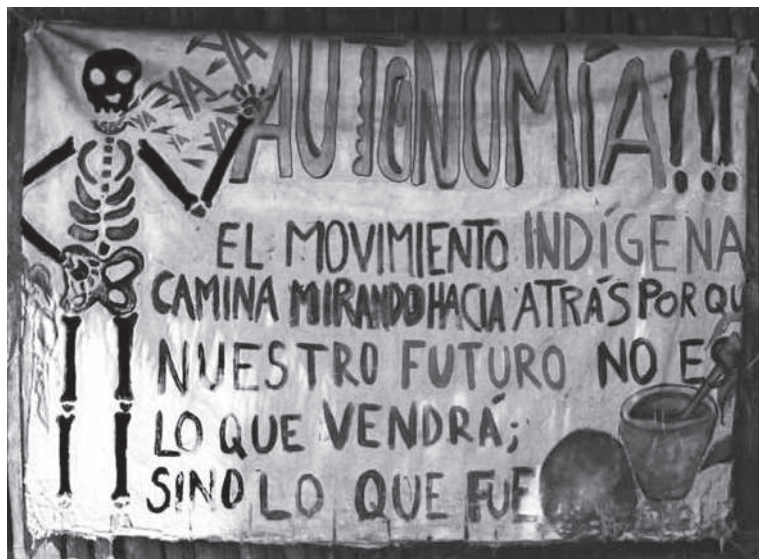 YA YA YA YA YA YA
AUTONOMÍA!!!
EL MOVIMIENTO INDÍGENA
CAMINA MIRANDO HACIA ATRÁS POR QU
NUESTRO FUTURO NO ES
LO QUE VENDRÁ;
SINO LO QUE FUE